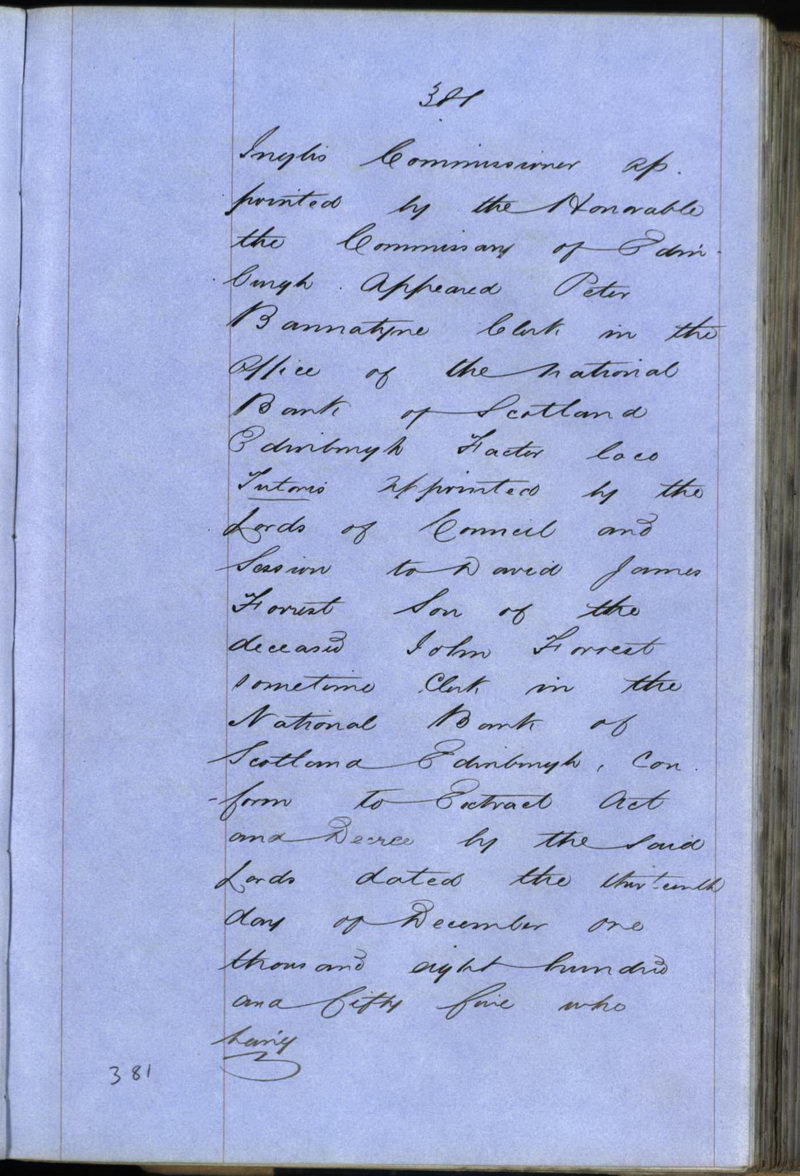 381
Inglis Commissioner ap.
pointed by the Honorable
the Commissary of Edin-
burgh. Appeared Peter
Bannatyne Clerk in the
Office of the National
Bank of Scotland
Edinburgh Factor loco
Tutoris appointed by the
Lords of Council and
Session to David James
Forrest Son of the
deceased John Forrest
sometime Clerk in the
National Bank of
Scotland Edinburgh, Con.
-form to Extract Act
and Decree by the said
Lords dated the thirteenth
day of December one
thousand eight hundred
and fifty five who
being
381